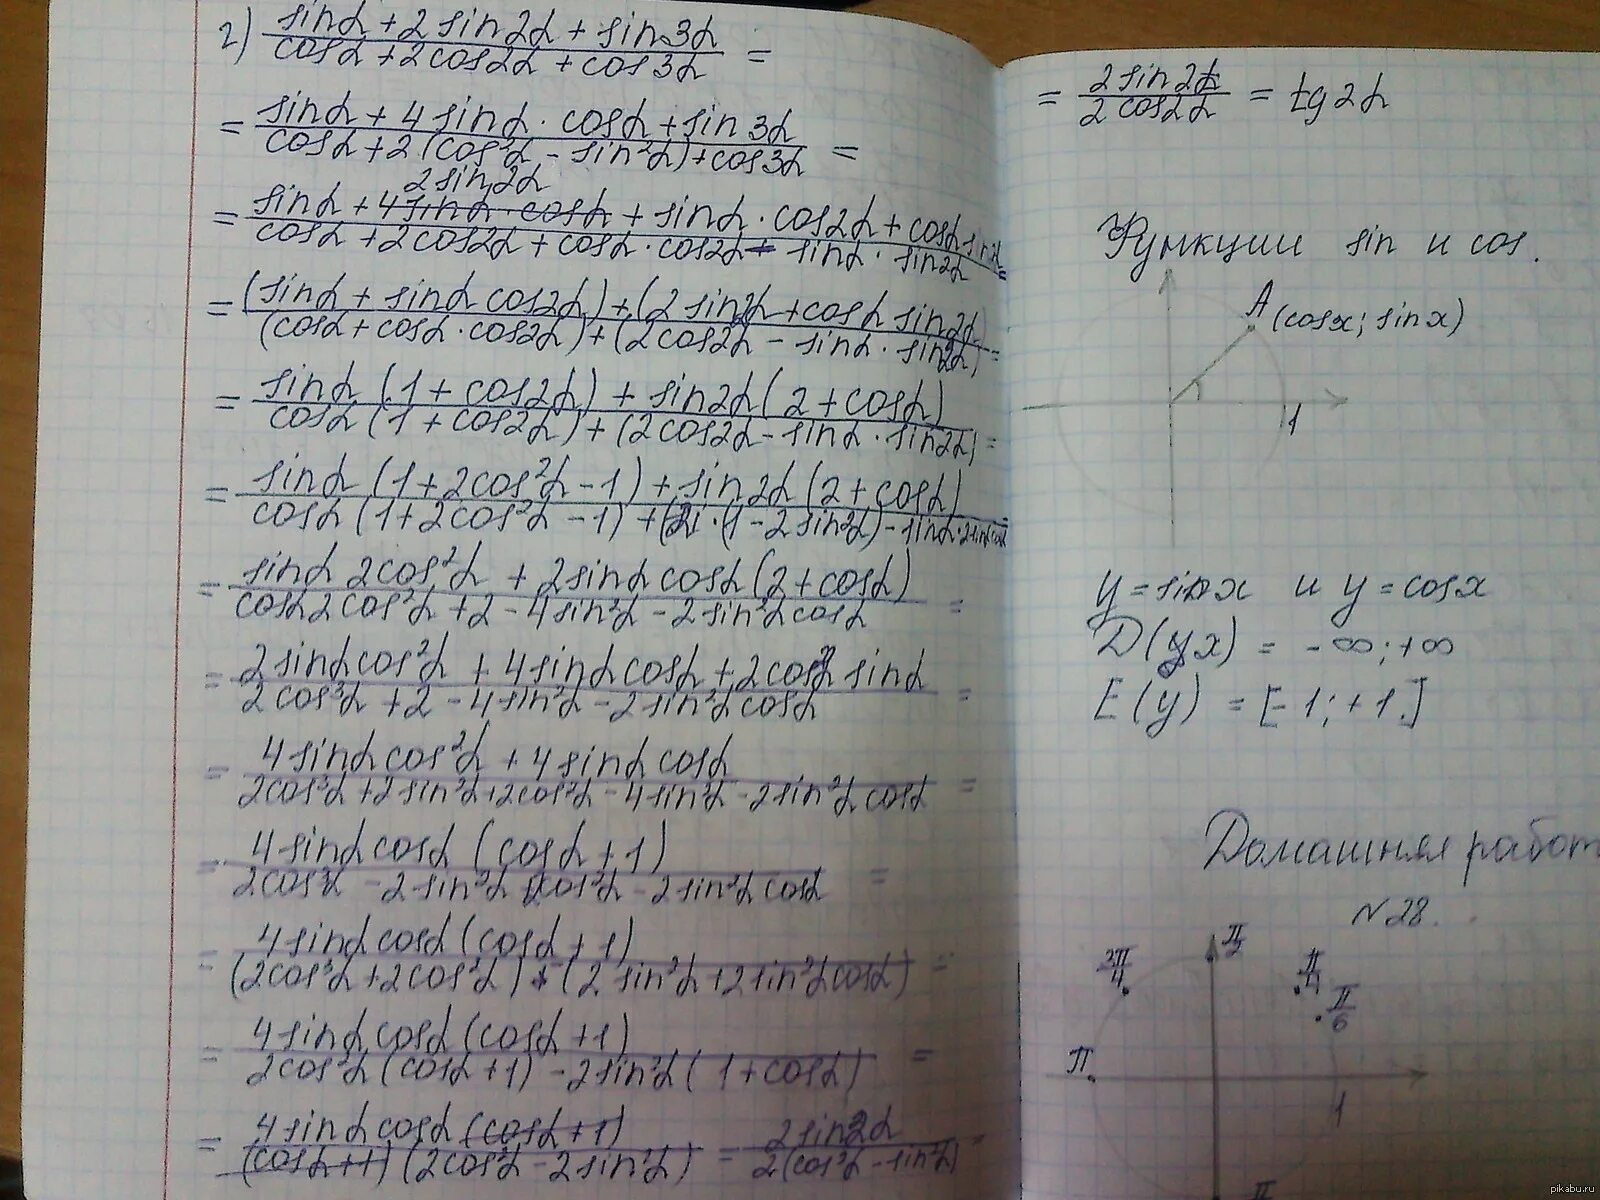 г) (sinα + 2 sin2α + sin3α)/(cosα + 2cos2α + cos3α) =
= (sinα + 4 sinα · cosα + sin3α)/(cosα + 2(cos²α - sin²α) + cos3α) =
2 sin2α
= (sinα + 4sinα · cosα + sinα · cos2α + cosα sin2α)/(cosα + 2cos2α + cosα · cos2α - sinα · sin2α) =
= ((sinα + sinα cos2α) + (2 sin2α + cosα sin2α))/((cosα + cosα · cos2α) + (2cos2α - sinα · sin2α)) =
= (sinα (1 + cos2α) + sin2α (2 + cosα))/(cosα (1 + cos2α) + (2cos2α - sinα · sin2α)) =
= (sinα (1 + 2cos²α - 1) + sin2α (2 + cosα))/(cosα (1 + 2cos²α - 1) + (2 · (1 - 2sin²α) - sinα · 2sinα cosα)) =
= (sinα 2cos²α + 2sinα cosα (2 + cosα))/(cosα 2cos²α + 2 - 4sin²α - 2sin²α cosα) =
= (2sinα cos²α + 4sinα cosα + 2cos²α sinα)/(2cos³α + 2 - 4sin²α - 2sin²α cosα) =
= (4sinα cos²α + 4sinα cosα)/(2cos³α + 2sin²α + 2cos²α - 4sin²α - 2sin²α cosα) =
= (4sinα cosα (cosα + 1))/(2cos³α - 2sin²α + 2cos²α - 2sin²α cosα) =
= (4sinα cosα (cosα + 1))/((2cos³α + 2cos²α) - (2sin²α + 2sin²α cosα)) =
= (4sinα cosα (cosα + 1))/(2cos²α (cosα + 1) - 2sin²α (1 + cosα)) =
= (4sinα cosα (cosα + 1))/((cosα + 1)(2cos²α - 2sin²α)) = (2sin2α)/(2(cos²α - sin²α)) =
= (2sin2α)/(2cos2α) = tg2α
Функции sin и cos.
A (cosx; sinx)
1
y = sinx и y = cosx
D(yx) = -∞;+∞
E(y) = [-1;+1.]
Домашняя работ
№28.
π/2
π/4
π/6
π
1
π
pikabu.ru